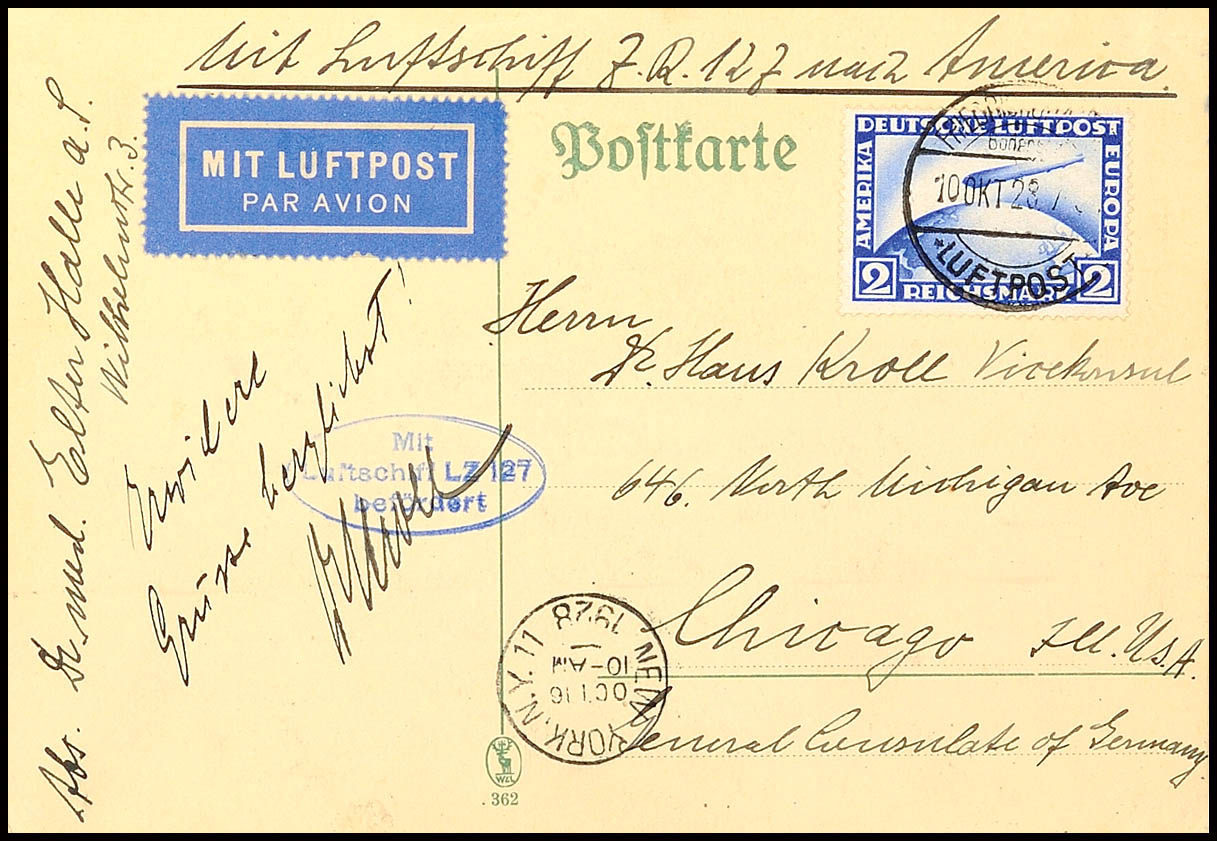 Mit Luftschiff Z.R.127 nach America.
MIT LUFTPOST
PAR AVION
Postkarte
DEUTSCHE LUFTPOST
AMERIKA
EUROPA
2 REICHSMARK 2
10 OKT 28
*LUFTPOST
Herrn
Dr. Hans Kroll Vicekonsul
646. North Michigan Ave
Chicago Ill. U.S.A.
General Consulate of Germany
Abs. Dr. med. Halle a. S.
Wilhelmstr. 3.
Erwidere
Grüsse herzlichst!
Kroll
Mit
Luftschiff LZ 127
befördert
NEW YORK, N.Y. 11
OCT 16
10-AM
1928
WZL
362